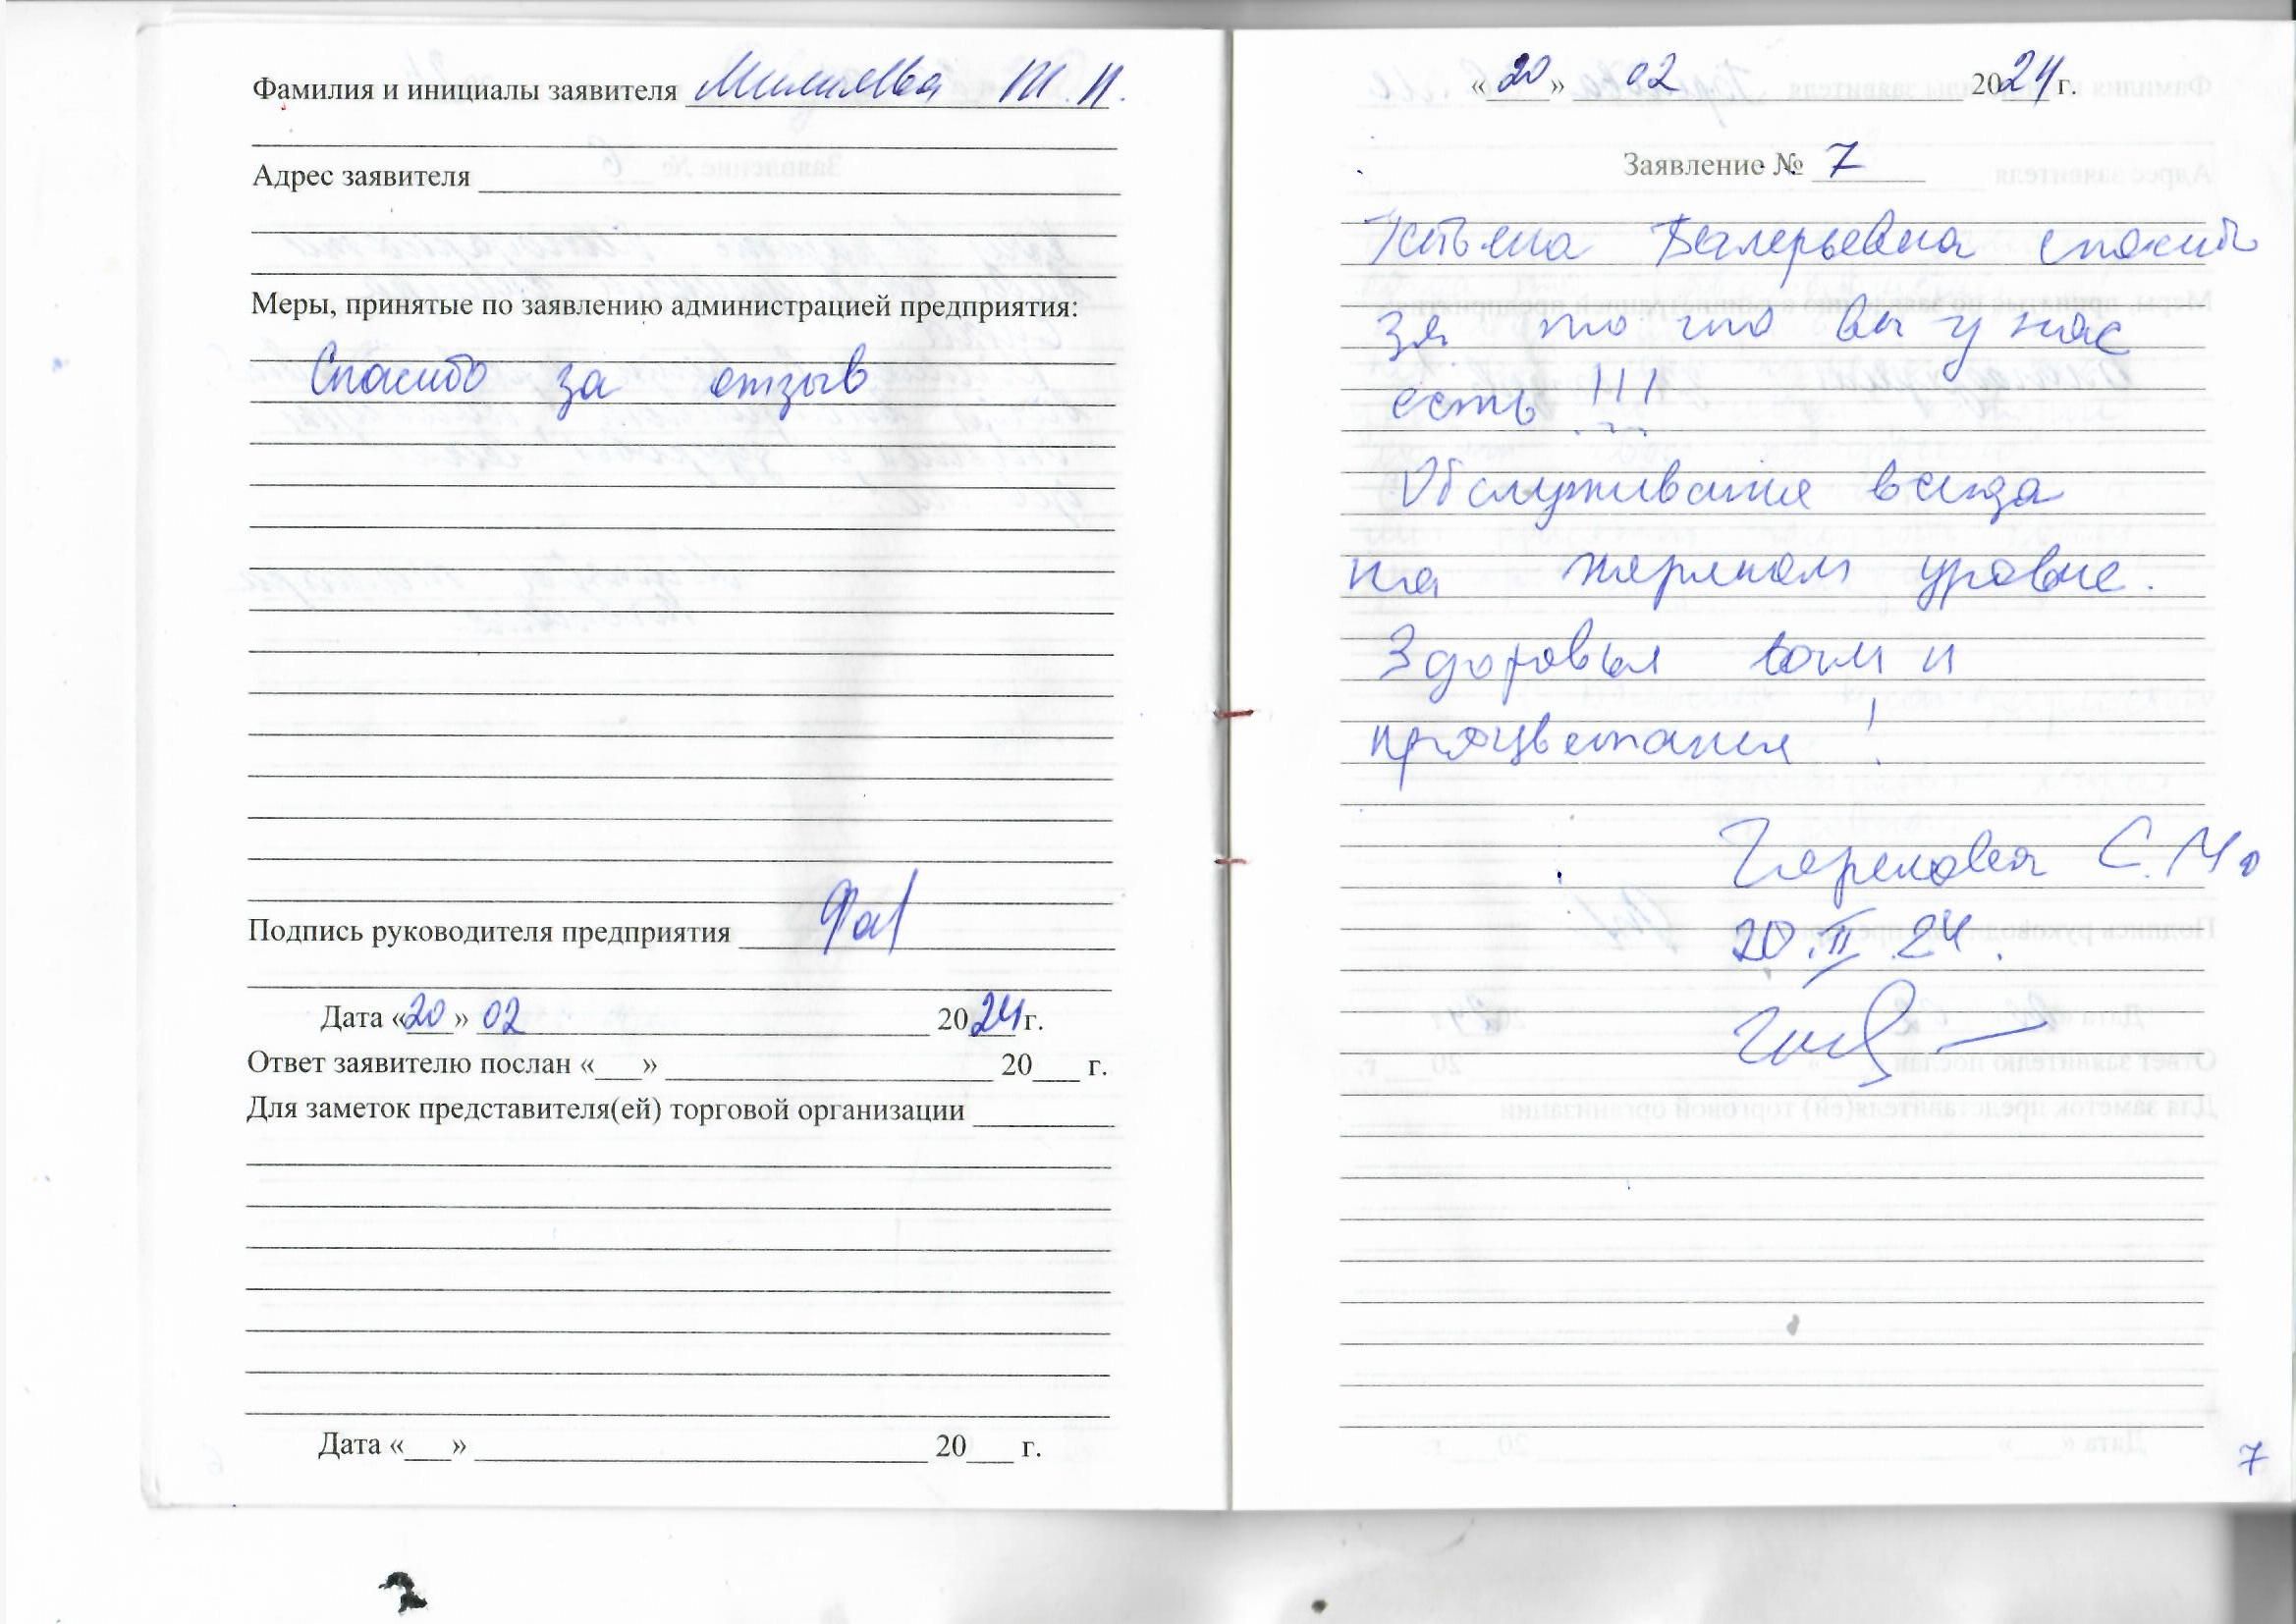 Фамилия и инициалы заявителя Т.П.
Адрес заявителя
Меры, принятые по заявлению администрацией предприятия:
Спасибо за отзыв
Подпись руководителя предприятия
Дата «20» 02 2024 г.
Ответ заявителю послан «___» ___ 20___ г.
Для заметок представителя(ей) торговой организации
Дата «___» ___ 20___ г.
«20» 02 2024 г.
Заявление № 7
Татьяна Валерьевна спасибо
за то что вы у нас
есть !!!
Обслуживание всегда
на уровне.
Здоровья вам и
процветания !
С.М.
20.II.24.
7